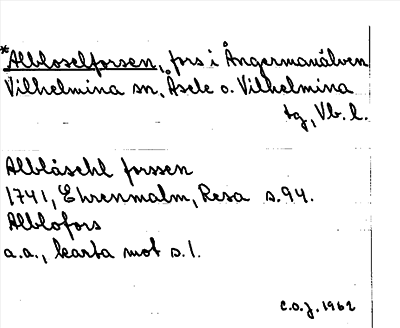 *Albloselforsen, fors i Ångermanälven
Vilhelmina sn, Åsele o. Vilhelmina
tg, Vb. l.
Alblåsehl forssen
1741, Ehrenmalm, Resa s. 94.
Alblofors
a.a., karta mot s. 1.
C.O.J. 1962